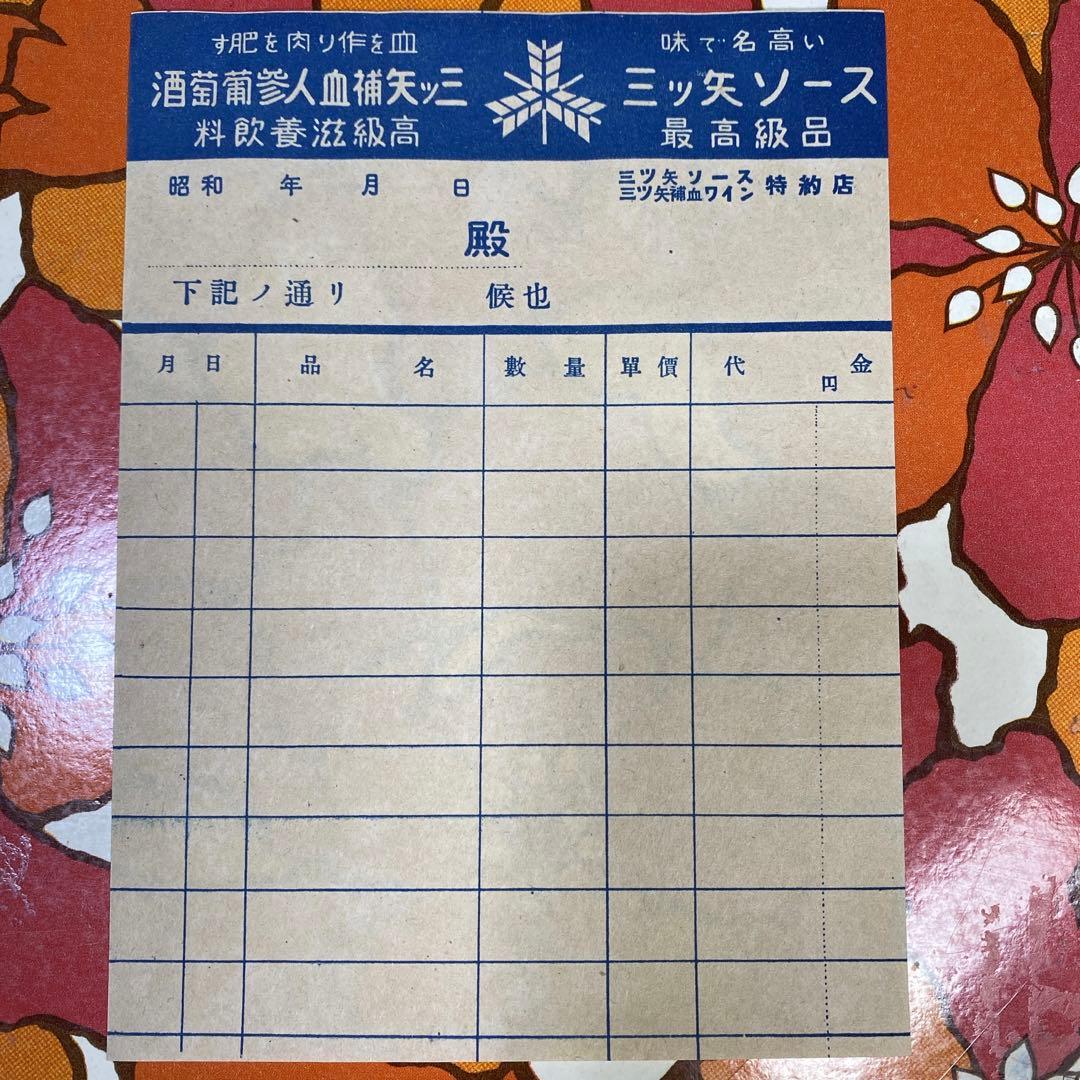 血を作り肉を肥す
三ッ矢補血人參葡萄酒
高級滋養飲料
味で名高い
三ッ矢ソース
最高級品
昭和 年 月 日
三ツ矢ソース
三ツ矢補血ワイン
特約店
殿
下記ノ通リ 候也
月日 品名 數量 單價 代金
円